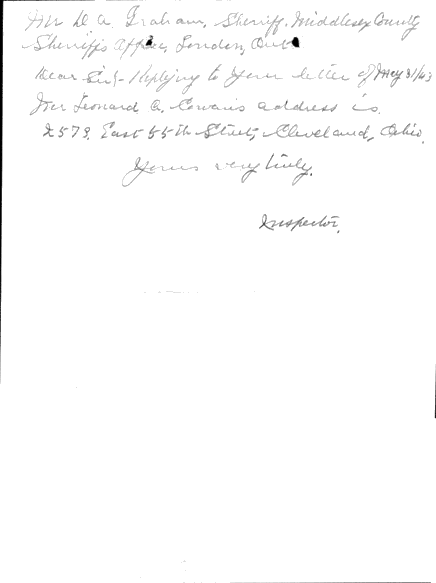 Mr D. A. Graham, Sheriff, Middlesex County
Sheriff's Office, London, Ont
Dear Sir:- Replying to your letter of May 31/43
Mr Leonard C. Cowan's address is
2573. East 55th Street, Cleveland, Ohio.
Yours very truly.
Inspector.